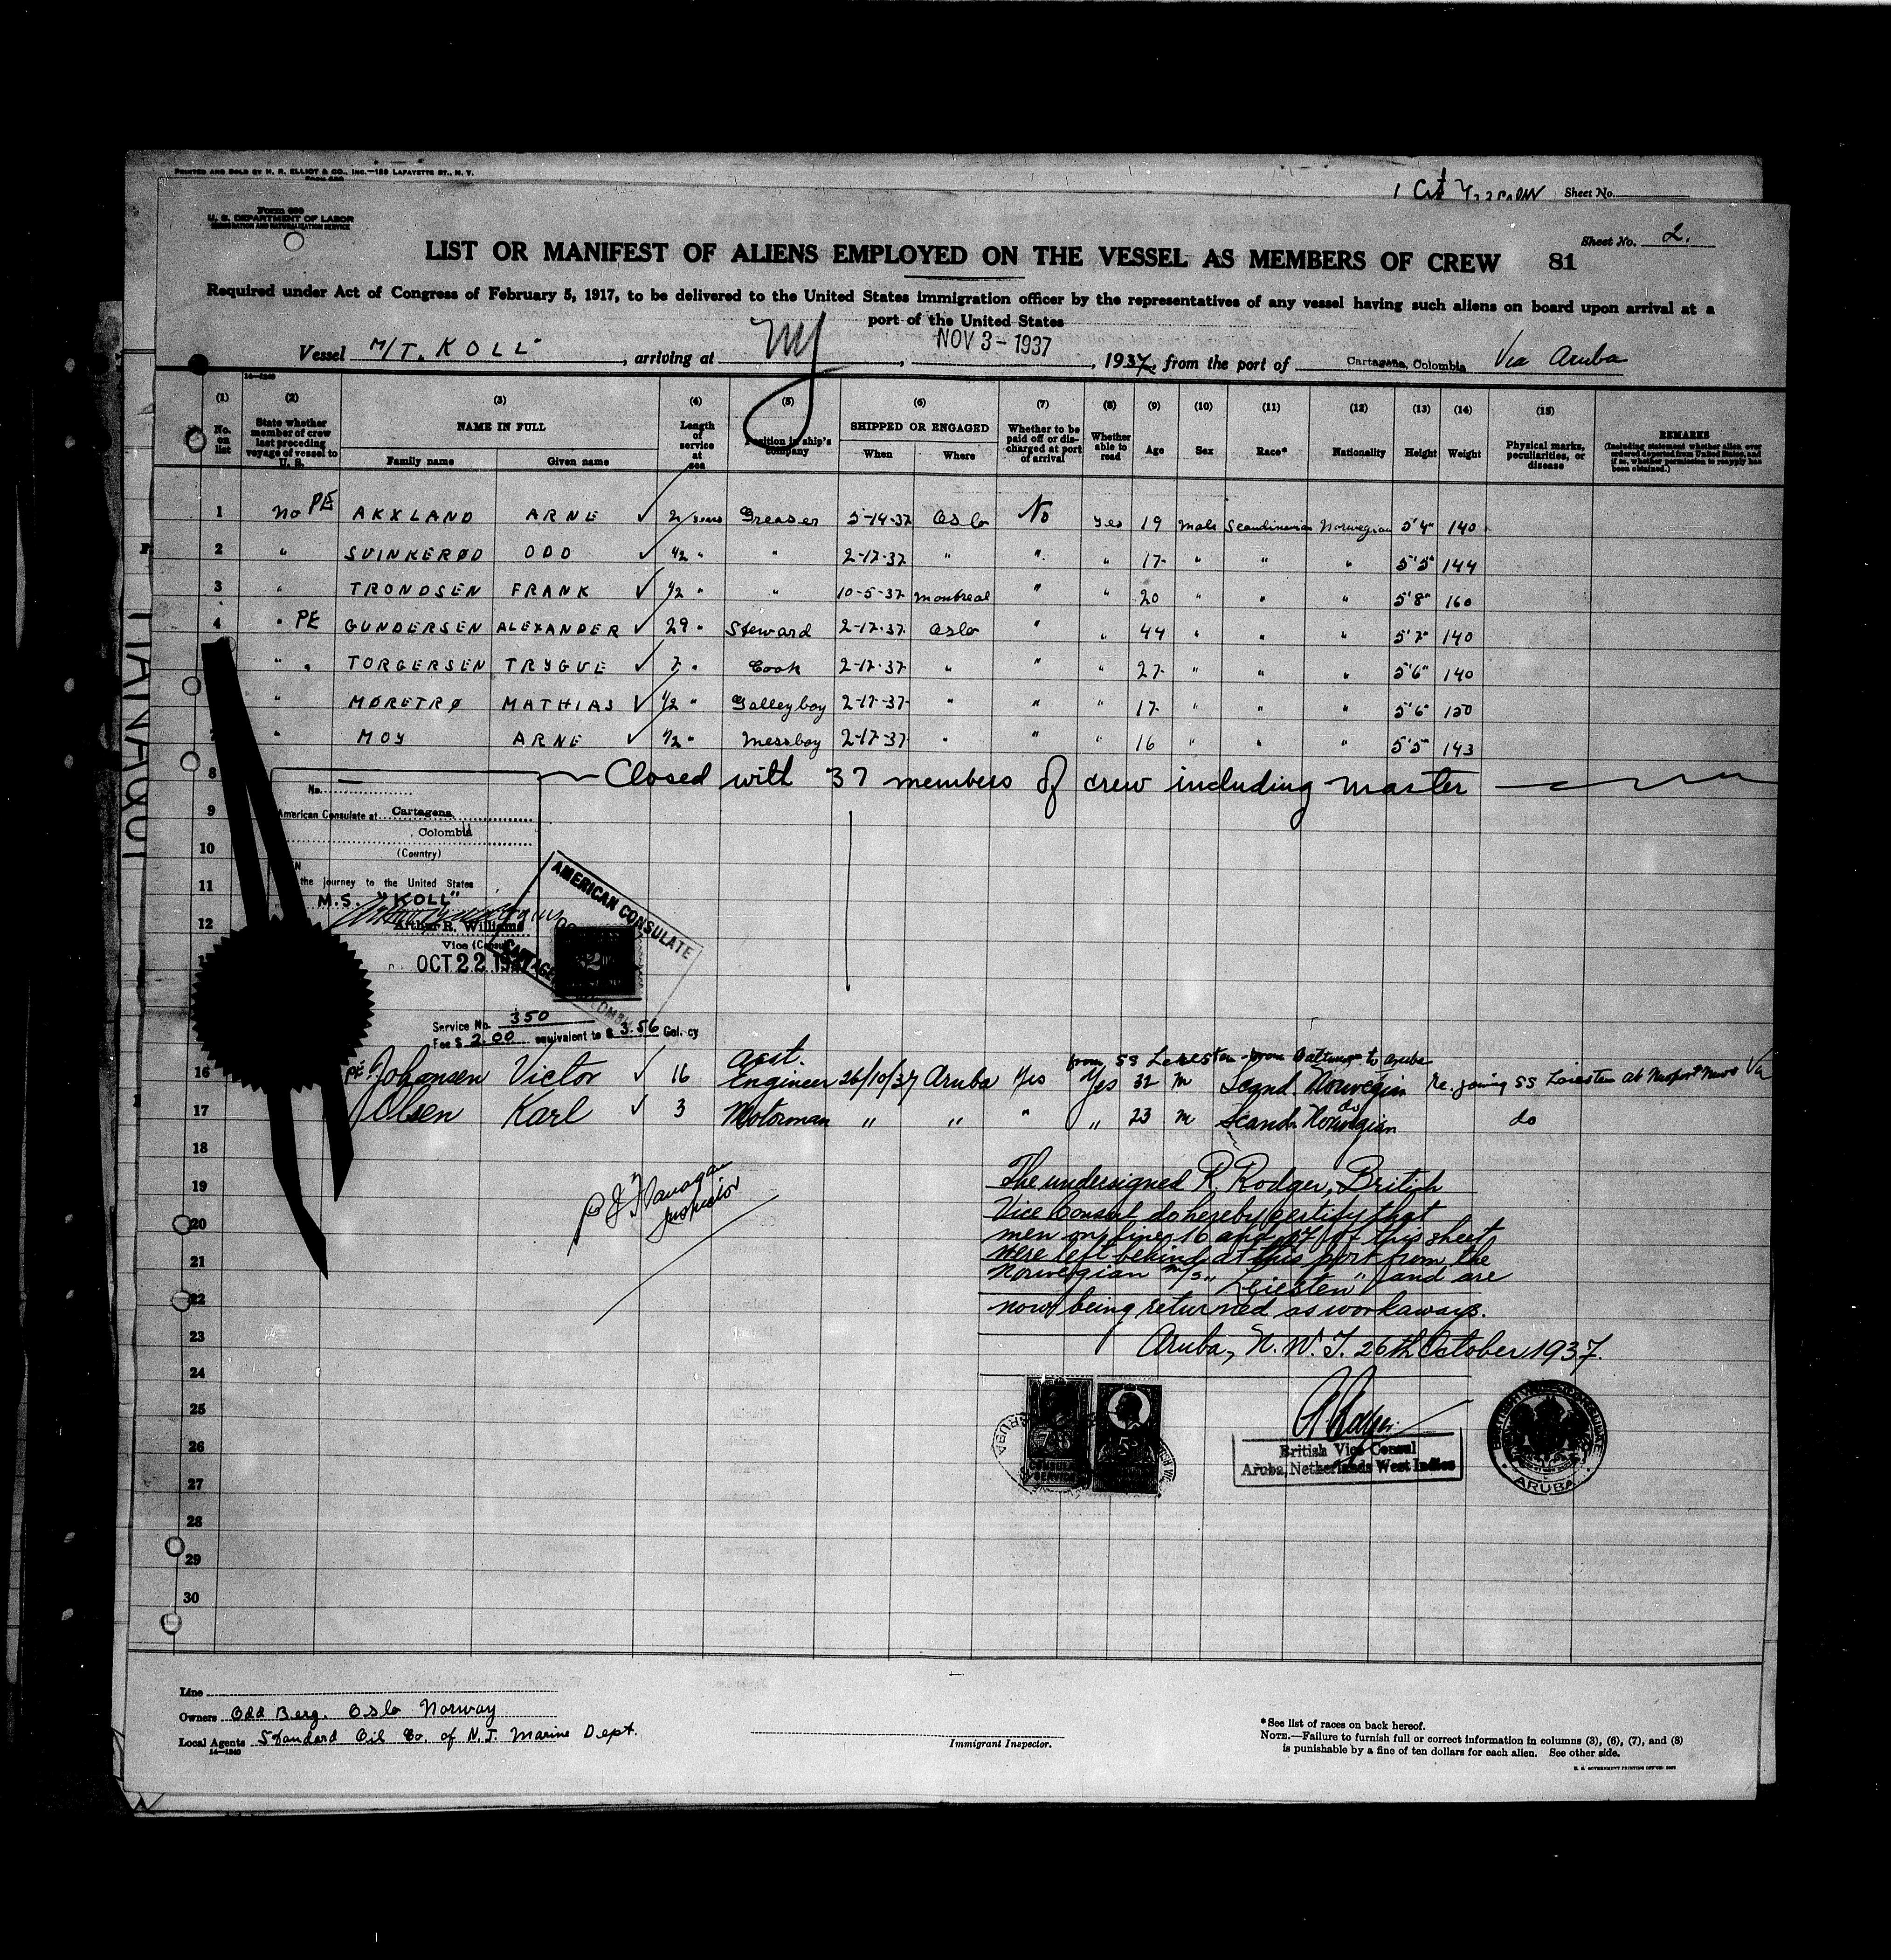 PRINTED AND SOLD BY H. R. ELLIOT & CO., INC.—129 LAFAYETTE ST., N. Y.
Sheet No.
Form 680
U. S. DEPARTMENT OF LABOR
IMMIGRATION AND NATURALIZATION SERVICE
Sheet No. 2.
LIST OR MANIFEST OF ALIENS EMPLOYED ON THE VESSEL AS MEMBERS OF CREW 81
Required under Act of Congress of February 5, 1917, to be delivered to the United States immigration officer by the representatives of any vessel having such aliens on board upon arrival at a
port of the United States
Vessel M/T. KOLL, arriving at NY, NOV 3 - 1937, 1937, from the port of Cartagena, Colombia Via Aruba
14—1240
(1) (2) (3) (4) (5) (6) (7) (8) (9) (10) (11) (12) (13) (14) (15)
No. on list
State whether member of crew last preceding voyage of vessel to U. S.
NAME IN FULL
Family name Given name
Length of service at sea
Position in ship's company
SHIPPED OR ENGAGED
When Where
Whether to be paid off or discharged at port of arrival
Whether able to read
Age Sex Race* Nationality Height Weight
Physical marks, peculiarities, or disease
REMARKS
(Including statement whether alien ever ordered deported from United States, and if so, whether permission to reapply has been obtained.)
1 No PE AKXLAND ARNE ✓ 2 years Greaser 5-14-37 Oslo No Yes 19 Male Scandinavian Norwegian 5'4" 140
2 " SVINKERØD ODD ✓ 1/2 " " 2-17-37 " " " 17 " " " 5'5" 144
3 " TRONDSEN FRANK ✓ 1/2 " " 10-5-37 Montreal " " 20 " " " 5'8" 160
4 " PE GUNDERSEN ALEXANDER ✓ 29 " Steward 2-17-37 Oslo " " 44 " " " 5'7" 140
" " TORGERSEN TRYGVE ✓ 7 " Cook 2-17-37 " " " 27 " " " 5'6" 140
" MØRETRØ MATHIAS ✓ 1/2 " Galleyboy 2-17-37 " " " 17 " " " 5'6" 150
7 " MOY ARNE ✓ 1/2 " Messboy 2-17-37 " " " 16 " " " 5'5" 143
8 Closed with 37 members of crew including master
No.
9 American Consulate at Cartagena,
Colombia
10 (Country)
11 the journey to the United States
M.S. "KOLL"
12 Arthur R. Williams
Vice Consul
OCT 22 1937
AMERICAN CONSULATE
Service No. 350
Fee $ 2.00 equivalent to $ 3.56 Col. cy
16 PE Johansen Victor ✓ 16 Asst. Engineer 26/10/37 Aruba Yes Yes 32 M Scand. Norwegian
17 Olsen Karl ✓ 3 Motorman " " " " 23 M Scand. Norwegian do
18
19
20
21
22
23
24
25
26
27
28
29
30
Inspector
The undersigned R. Rodger, British
Vice Consul do hereby certify that
men on lines 16 and 17 of this sheet
were left behind at this port from the
Norwegian M/S "Leiesten" and are
now being returned as workaways.
Aruba, N. W. I. 26th October 1937.
British Vice Consul
Aruba, Netherlands West Indies
ARUBA
Line
Owners Odd Berg. Oslo Norway
Local Agents Standard Oil Co. of N.J. Marine Dept.
14—1240
Immigrant Inspector.
*See list of races on back hereof.
NOTE.—Failure to furnish full or correct information in columns (3), (6), (7), and (8)
is punishable by a fine of ten dollars for each alien. See other side.